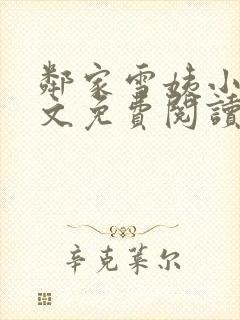 鄰家雪姨小
文免費閱讀
辛克莱尔